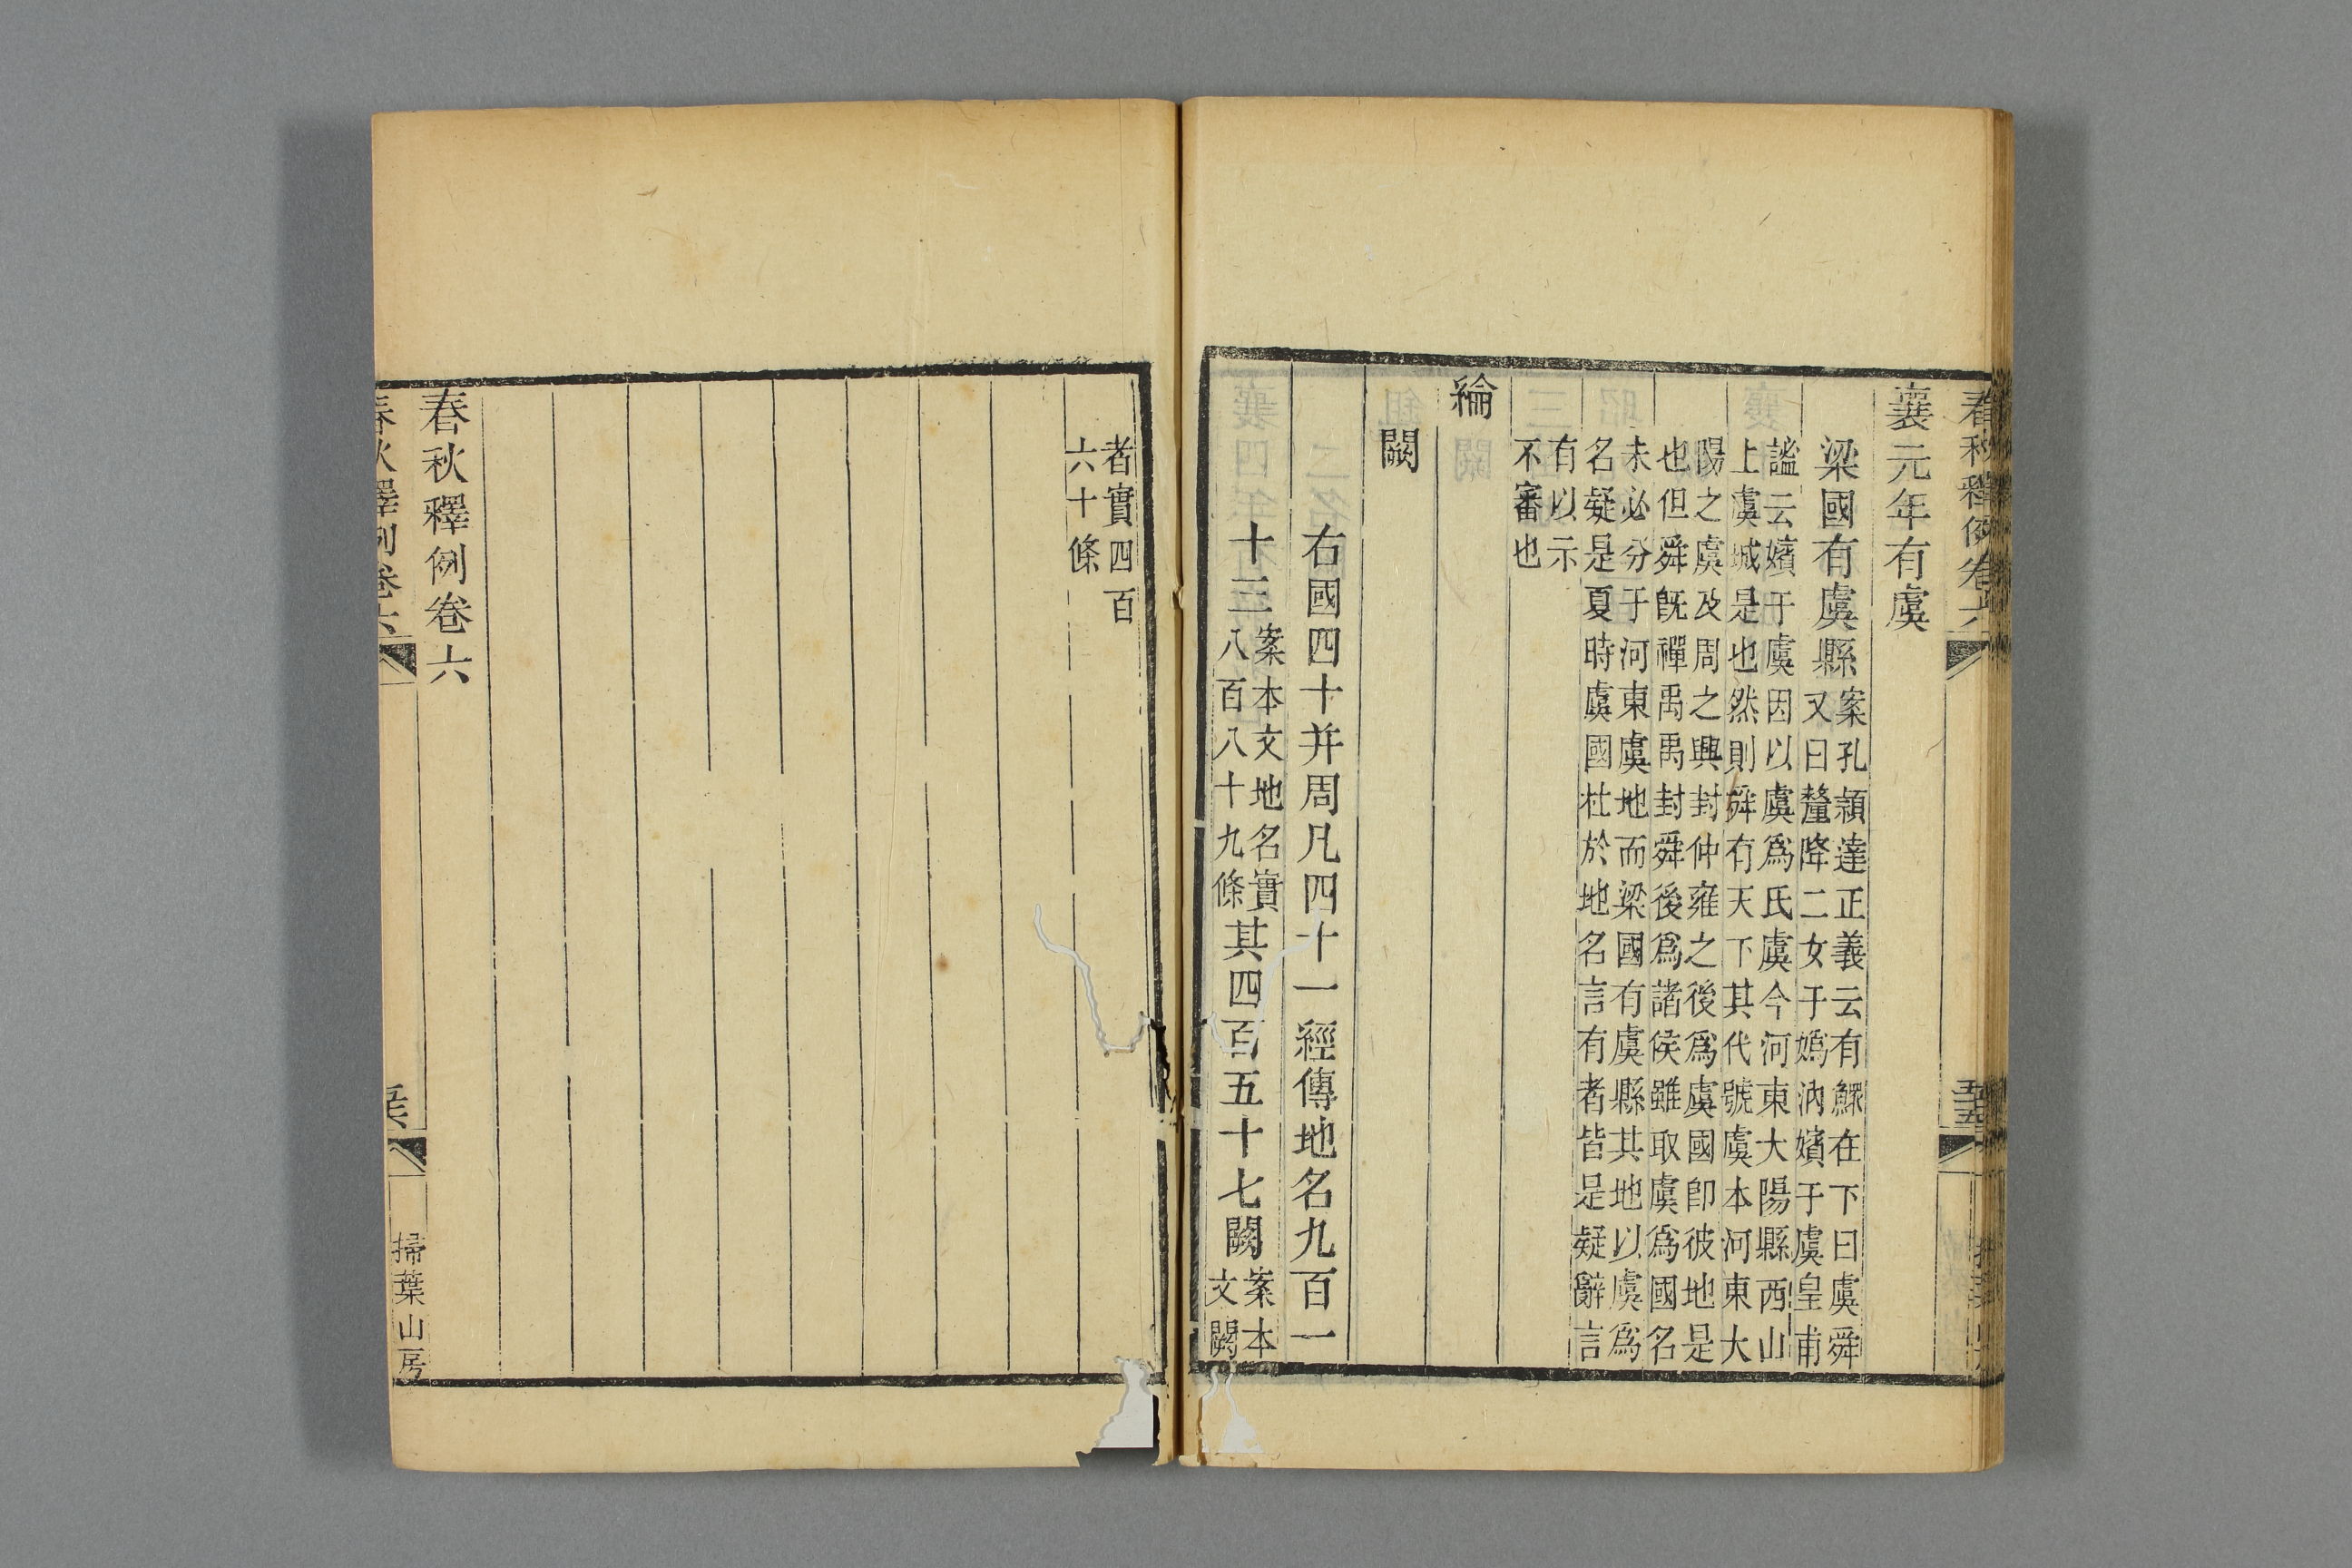 春秋釋例卷六
襄元年有虞
梁國有虞縣
案孔穎達正義云有鰥在下曰虞舜
又曰釐降二女于嬀汭嬪于虞皇甫
謐云嬪于虞因以虞爲氏虞今河東大陽縣西山
上虞城是也然則舜有天下其代號虞本河東大
陽之虞及周之興封仲雍之後爲虞國卽彼地是
也但舜旣禪禹禹封舜後爲諸侯雖取虞爲國名
未必分于河東虞地而梁國有虞縣其地以虞爲
名疑是夏時虞國杜於地名言有者皆是疑辭言
有以示
不審也
綸
闕
右國四十并周凡四十一經傳地名九百一
十三
案本文地名實
八百八十九條
其四百五十七闕
案本
文闕
者實四百
六十條
春秋釋例卷六
春秋釋例卷六
掃葉山房